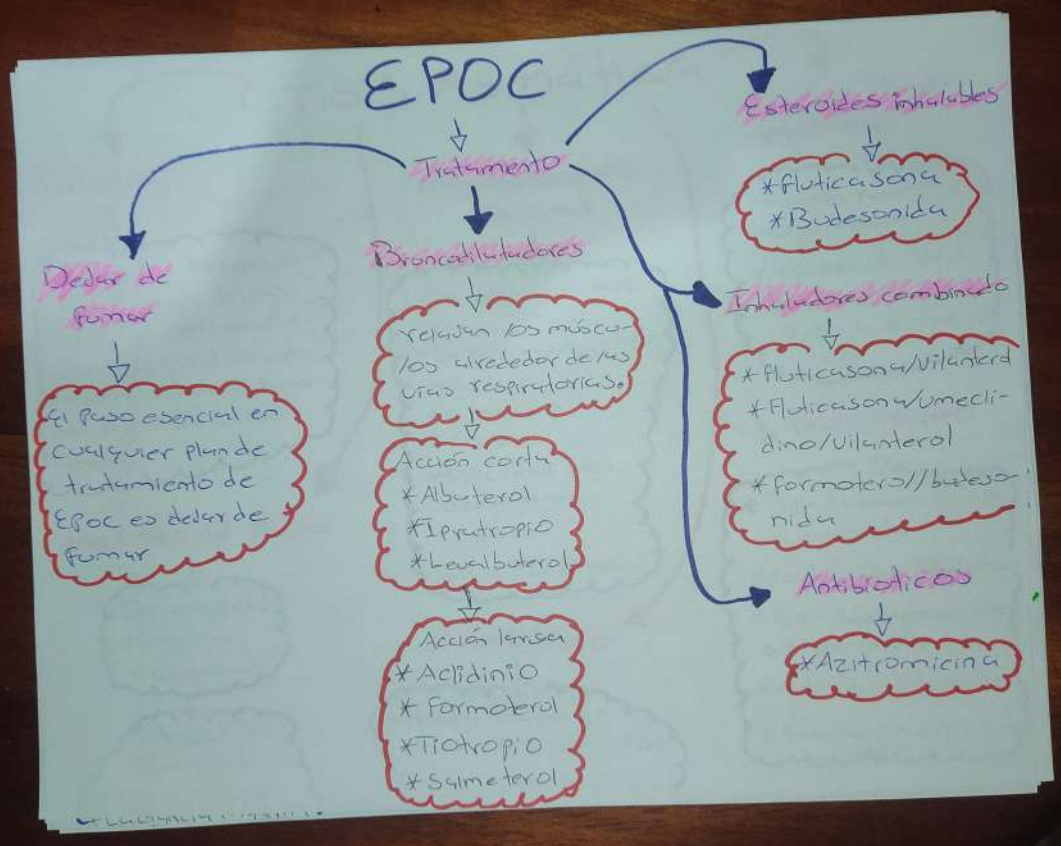 EPOC
Tratamiento
Dejar de
fumar
El paso esencial en
cualquier plan de
tratamiento de
EPOC es dejar de
fumar
Broncodilatadores
relajan los múscu-
los alrededor de las
vías respiratorias.
Acción corta
*Albuterol
*Ipratropio
*Levalbuterol
Acción larga
*Aclidinio
*Formoterol
*Tiotropio
*Salmeterol
Esteroides inhalables
*fluticasona
*Budesonida
Inhaladores combinado
*fluticasona/vilanterol
*Fluticasona/umecli-
dino/vilanterol
*formoterol/budeso-
nida
Antibioticos
*Azitromicina